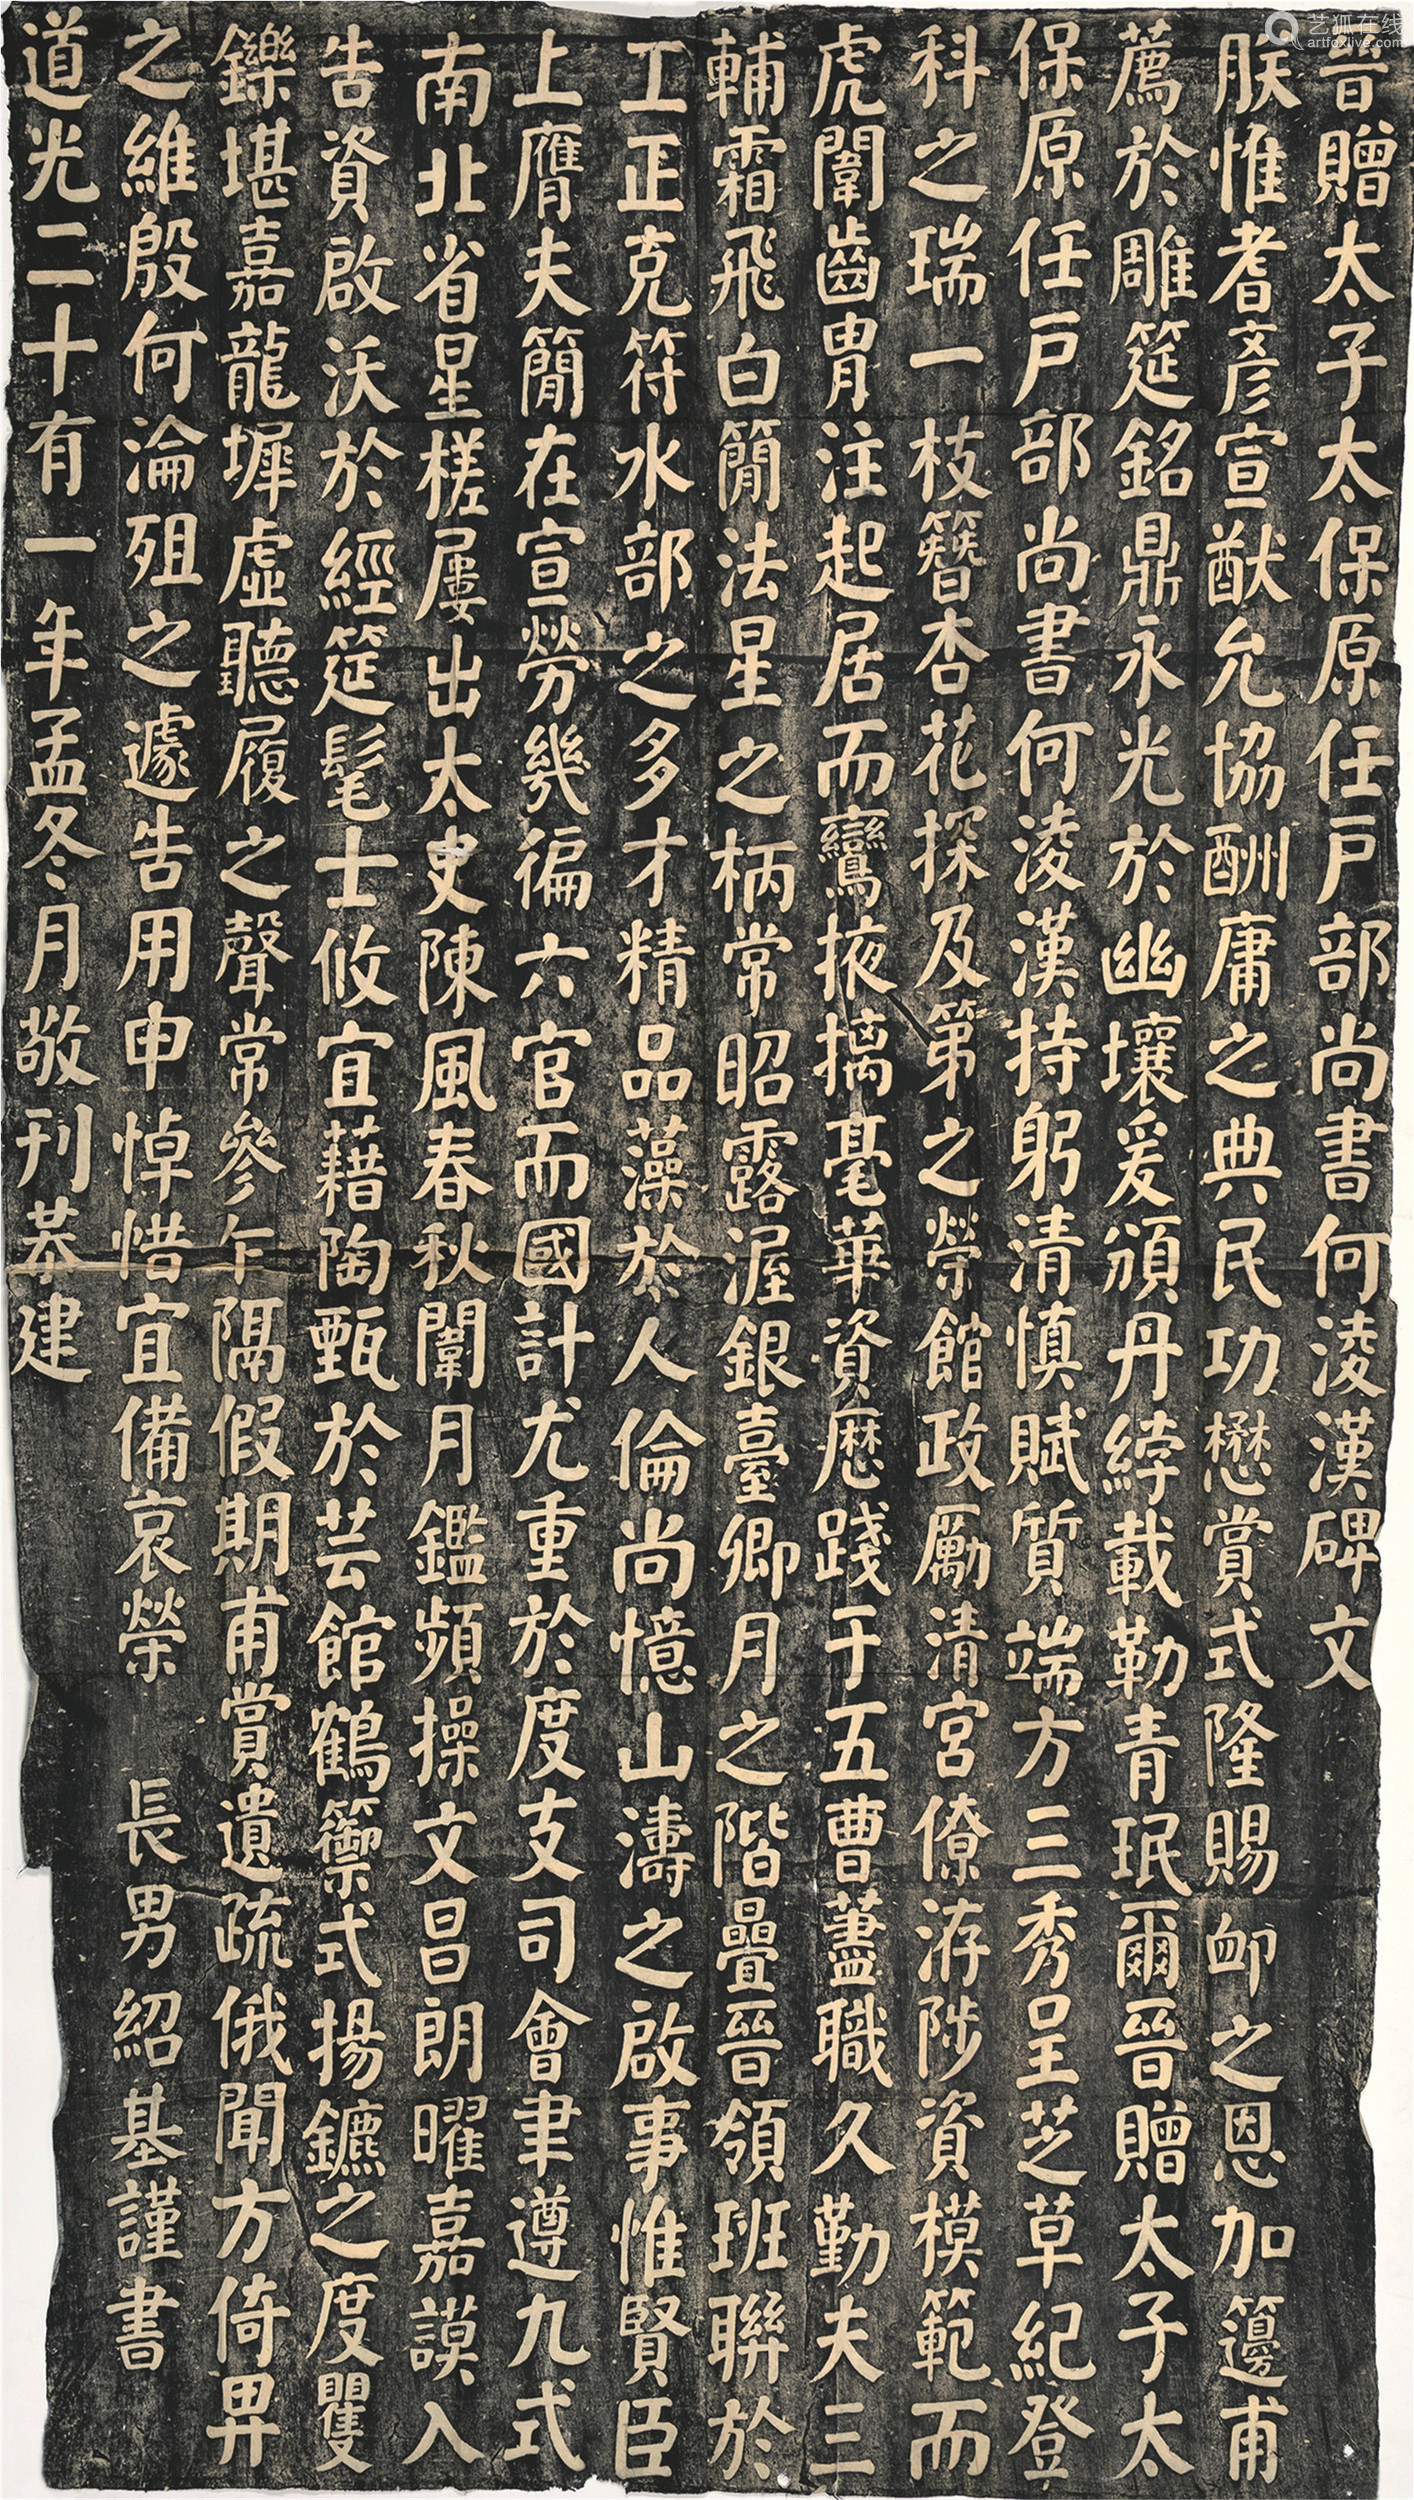 晉贈太子太保原任戶部尚書何淩漢碑文
朕惟耆彥宣猷允協酬庸之典民功懋賞式隆賜卹之恩加籩甫
薦於雕筵銘鼎永光於幽壤爰頒丹綍載勒青珉爾晉贈太子太
保原任戶部尚書何淩漢持躬清慎賦質端方三秀呈芝草紀登
科之瑞一枝簪杏花探及第之榮館政厲清宮僚洊陟資模範而
虎闈齒胄注起居而鸞掖摛毫華資歷踐于五曹藎職久勤夫三
輔霜飛白簡法星之柄常昭露渥銀臺卿月之階疊晉領班聯於
工正克符水部之多才精品藻於人倫尚憶山濤之啟事惟賢臣
上膺夫簡在宣勞幾徧六官而國計尤重於度支司會聿遵九式
南北省星槎屢出太史陳風春秋闈月鑑頻操文昌朗曜嘉謨入
告資啟沃於經筵髦士攸宜藉陶甄於芸館鶴籞式揚鑣之度矍
鑠堪嘉龍墀虛聽履之聲常參乍隔假期甫賞遺疏俄聞方倚畀
之維殷何淪殂之遽告用申悼惜宜備哀榮 長男紹基謹書
道光二十有一年孟冬月敬刊恭建
艺狐在线
artfoxlive.com